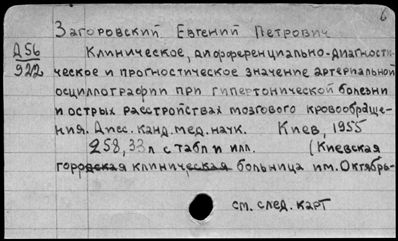 6
Загоровский Евгений Петрович
Д56
922
Клиническое, дифференциально-диагности-
ческое и прогностическое значение артериальной
осциллографии при гипертонической болезни
и острых расстройствах мозгового кровообраще-
ния. Дисс. канд. мед. наук. Киев, 1955
258, 33 л с табл и илл. (Киевская
городская клиническая больница им. Октябрь-
см. след. карт